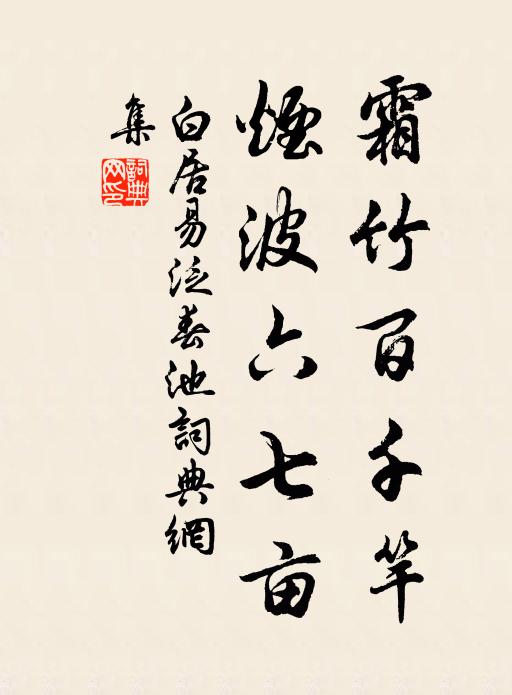 霜竹百千竿
煙波六七亩
白居易泛春池詞典網
集
詞典
网印